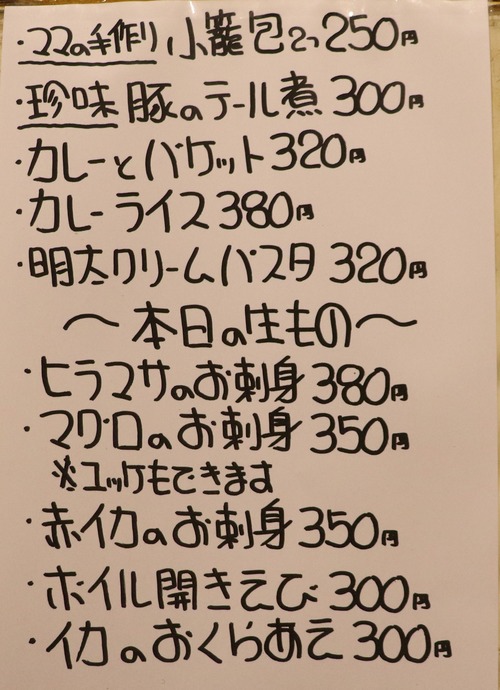 ・ママの手作り 小籠包2つ250円
・珍味 豚のテール煮 300円
・カレーとバケット320円
・カレーライス380円
・明太クリームパスタ 320円
〜本日の生もの〜
・ヒラマサのお刺身380円
・マグロのお刺身350円
※ユッケもできます
・赤イカのお刺身350円
・ボイル開きえび300円
・イカのおくらあえ300円